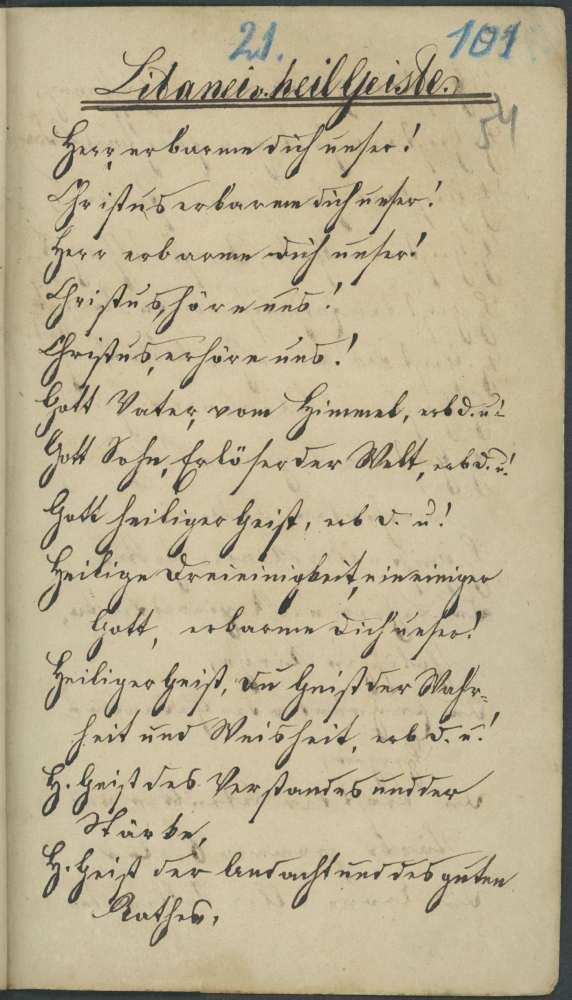 21. 101
Litanei v. heil Geiste.
54
Herr, erbarme dich unser!
Christus erbarme dich unser!
Herr erbarme dich unser!
Christus, höre uns!
Christus, erhöre uns!
Gott Vater, vom Himmel, erb d. u!
Gott Sohn, Erlöser der Welt, erb d. u!
Gott heiliger Geist, erb d. u!
Heilige Dreieinigkeit, ein einiger
Gott, erbarme dich unser!
Heiliger Geist, du Geist der Wahr-
heit und Weisheit, erb d. u!
H. Geist des Verstandes und der
Stärke,
H. Geist der Andacht und des guten
Rathes,